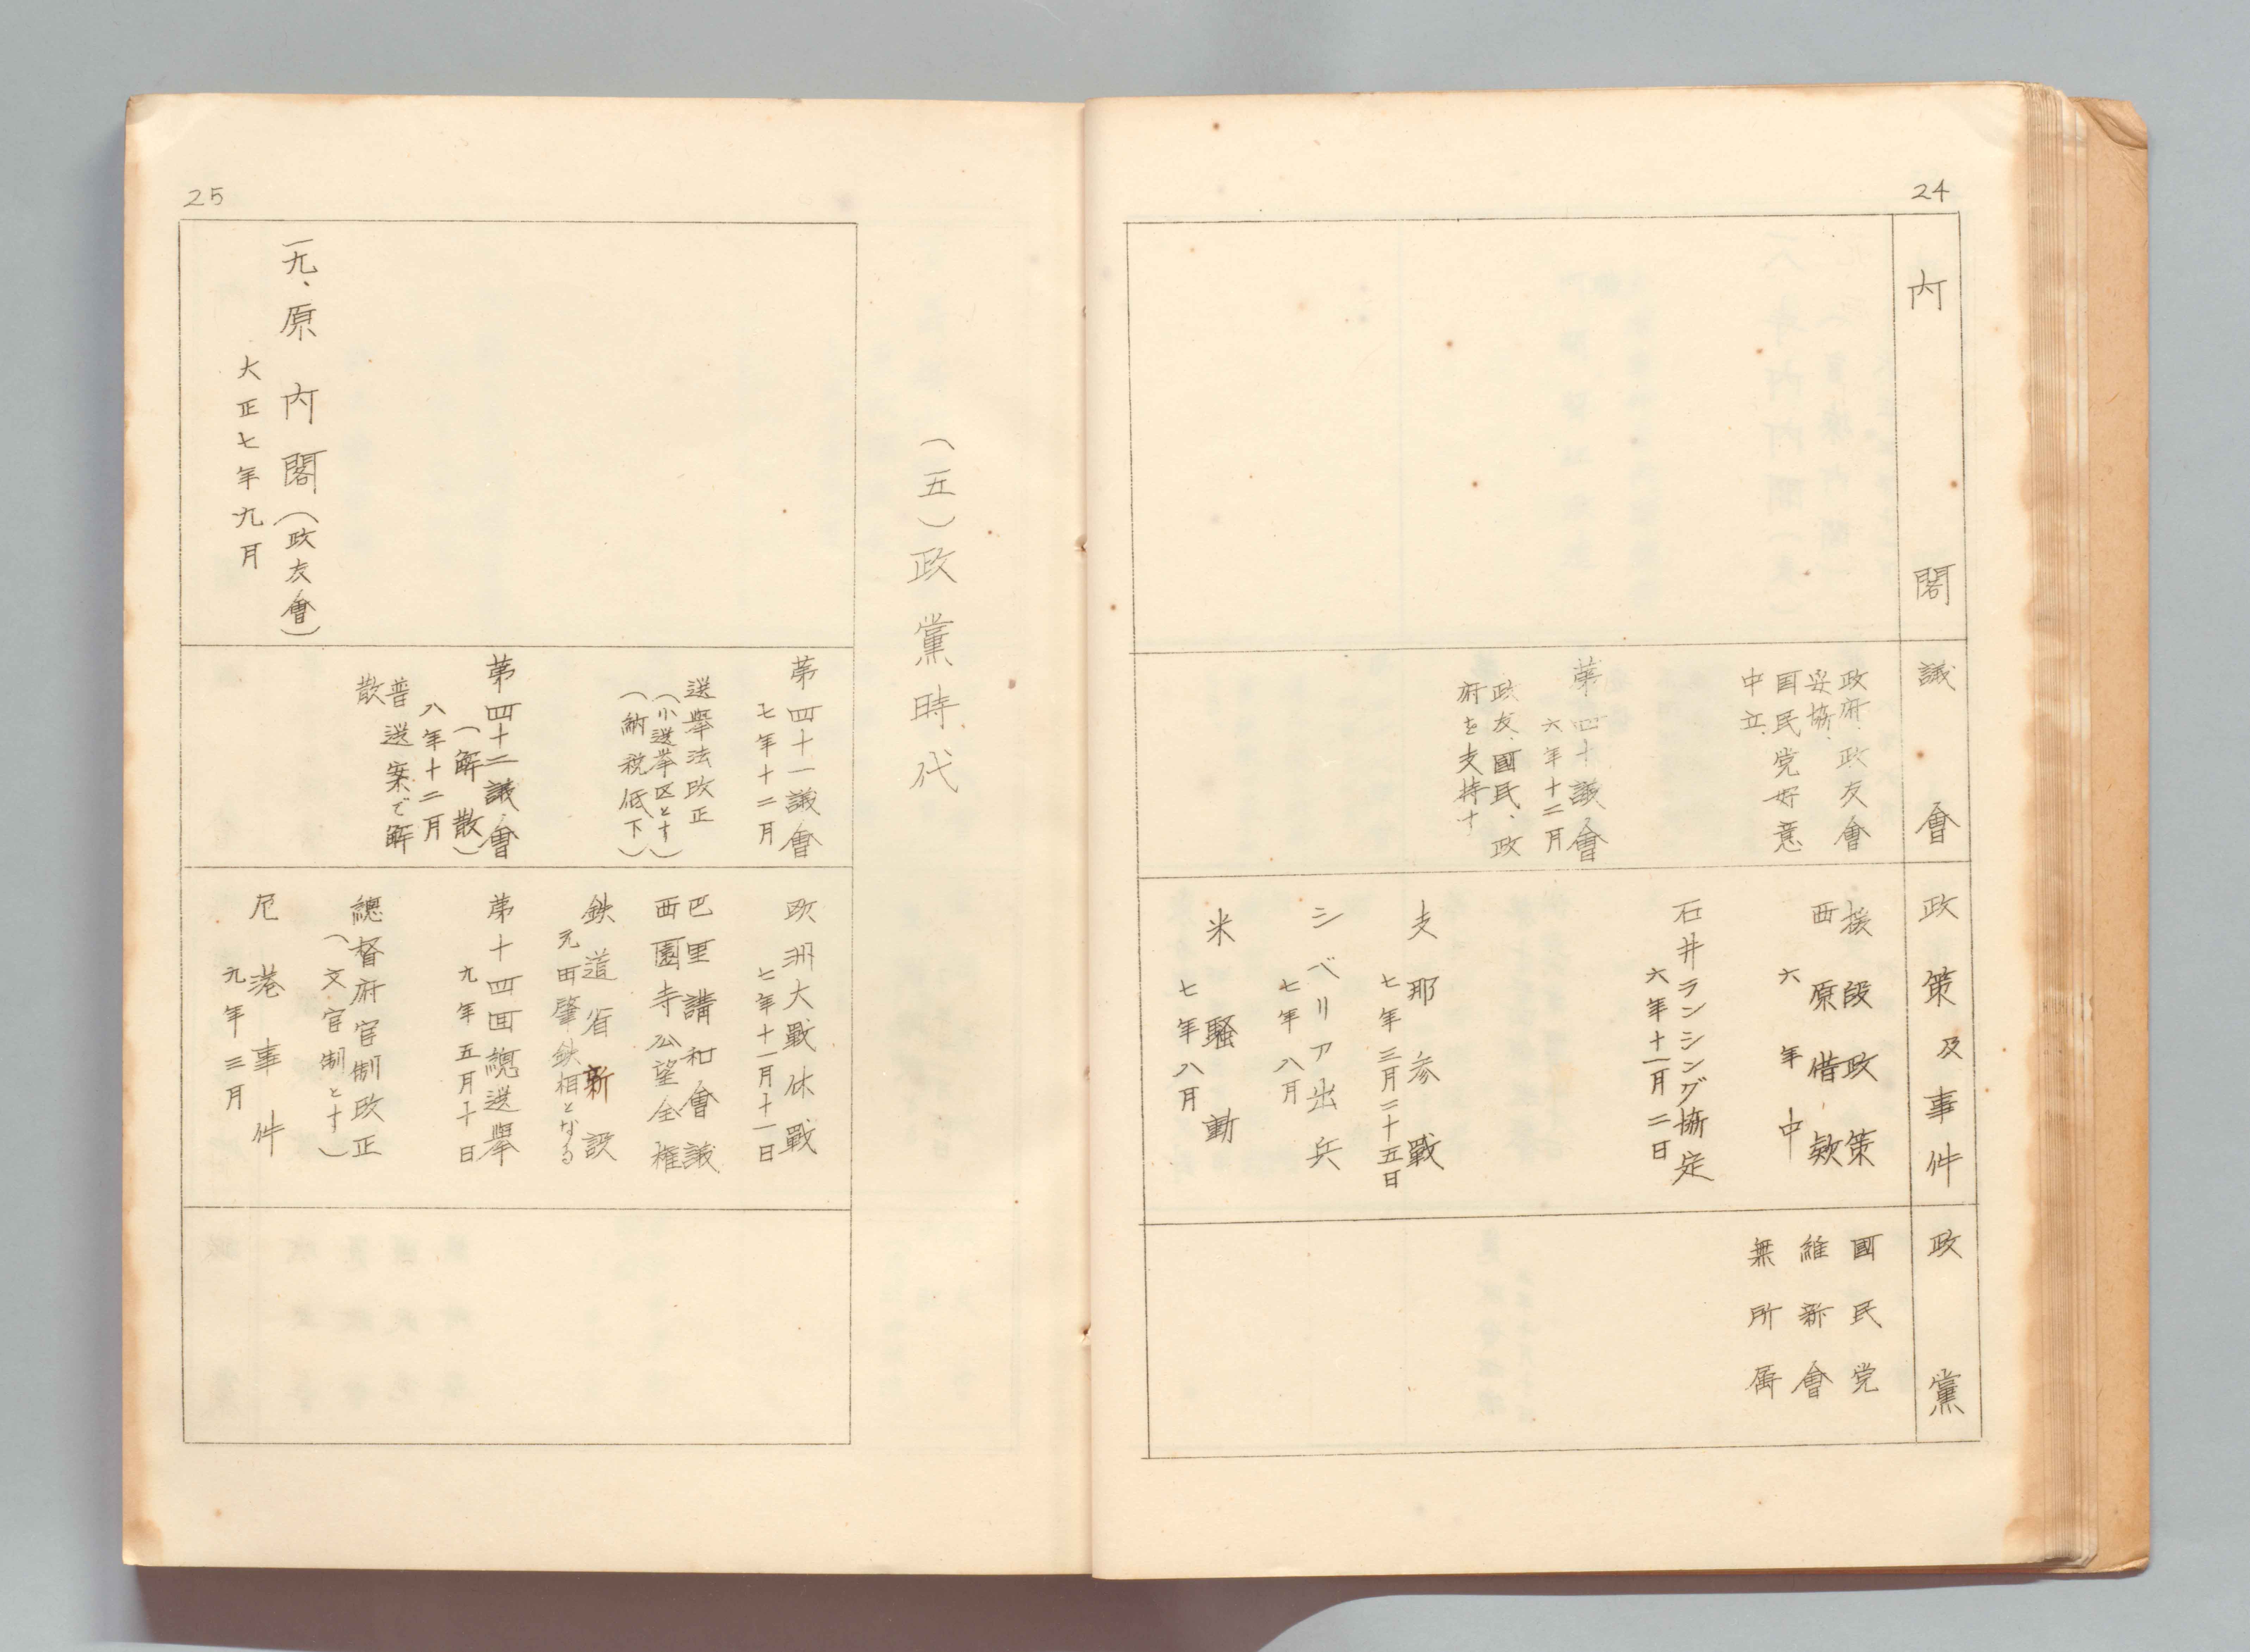 24
内閣
議會
政策及事件
政黨
政府、政友會
妥協、
国民党好意
中立、
第四十議會
六年十二月
政友、國民、政
府を支持す
援段政策
西原借欵
六年中
石井ランシング協定
六年十一月二日
支那参戰
七年三月二十五日
シベリア出兵
七年八月
米騒動
七年八月
國民党
維新會
無所属
25
(五)政黨時代
一九、原内閣(政友會)
大正七年九月
第四十一議會
七年十二月
選舉法改正
(小選挙区とす)
(納税低下)
第四十二議會
(解散)
八年十二月
普選案で解
散
欧洲大戰休戰
七年十一月十一日
巴里講和會議
西園寺公望全権
鉄道省新設
元田肇鉄相となる
第十四回總選舉
九年五月十日
總督府官制改正
(文官制とす)
尼港事件
九年三月